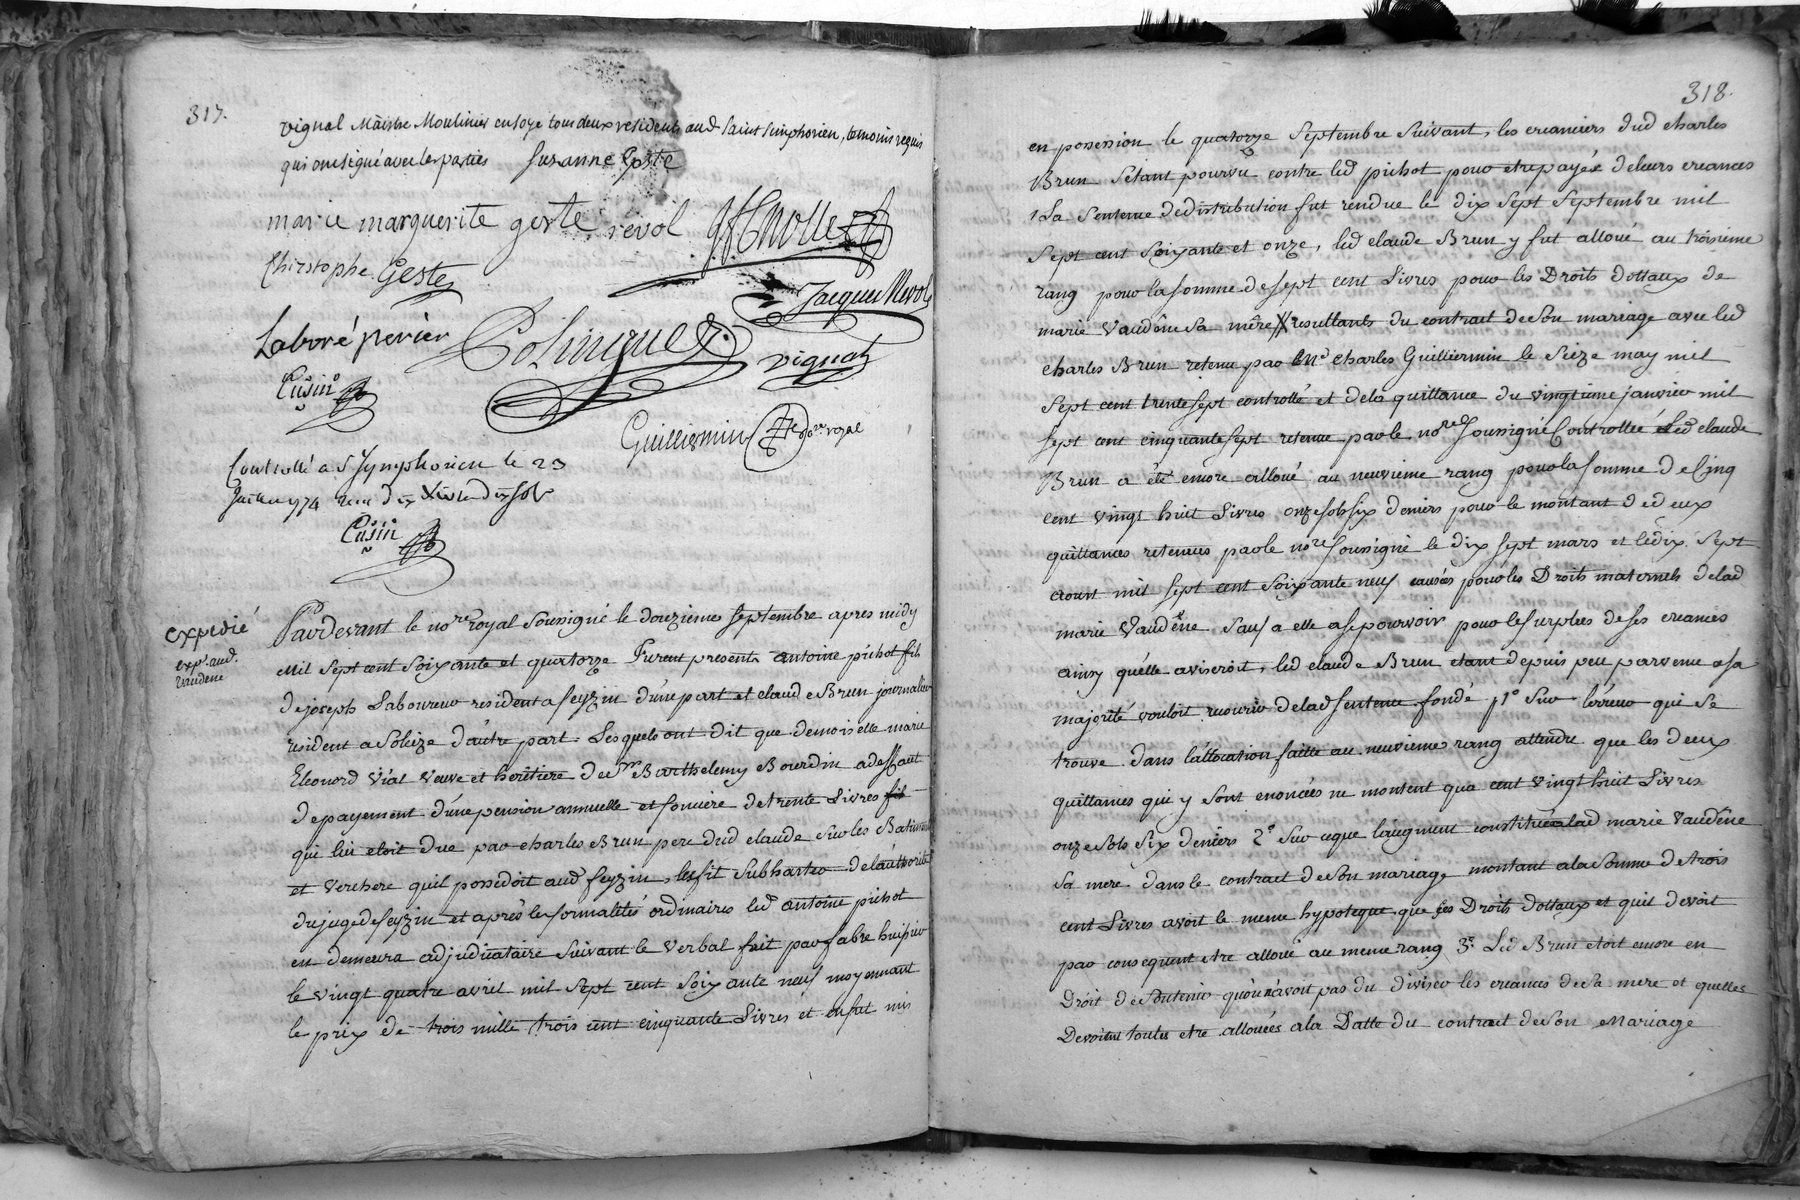 317.
vignal Maistre Moulinier en soye tous deux residents aud. saint simphorien, temoins requis
qui ont signé avec les parties suzanne geste
marie marguerite geste revol
Christophe Geste
Jacques Revol
Laboré perier Colinguer vignal
Cusin
Guilliermin no.re royal
Controllé a St Symphorien le 23
1774 recu dix sols
Cusin
expedié
exp.ᵉ aud.
vaudene
Pardevant le no.re royal soussigné le douzieme septembre apres midy
mil sept cent soixante et quatorze furent presents antoine pichot fils
de joseph Laboureur resident a feyzin d'une part et claude Brun journalier
resident a Solaize d'autre part. Lesquels ont dit que demoiselle marie
Eleonord vial veuve et heritiere de s.r Barthelemy Bourdin a deffaut
de payement d'une pension annuelle et fonciere de trente Livres
qui lui etoit due par charles Brun pere dud claude sur les Batiments
et verchere quil possedoit aud feyzin, les fit subhaster de l'authorité
du juge de feyzin et après les formalités ordinaires led antoine pichot
en demeura adjudicataire suivant le verbal fait par fabre huissier
le vingt quatre avril mil sept cent soixante neuf moyennant
le prix de trois mille trois cent cinquante Livres et en fut mis
318.
en possession le quatorze septembre suivant, les creanciers dud charles
Brun s'étant pourvu contre led pichot pour etre payés de leurs creances
La sentence de distribution fut rendue le dix sept septembre mil
sept cent soixante et onze, led claude Brun y fut alloué au troisieme
rang pour la somme de sept cent Livres pour les Droits dottaux de
marie vaudêne sa mére resultants du contrait de son mariage avec led
charles Brun retenu par Me charles Guilliermin le seize may mil
sept cent trente sept controllé et de la quittance du vingtieme janvier mil
sept cent cinquante sept retenue par le no.re soussigné Controllée led claude
Brun a été encore alloué au neuvieme rang pour la somme de Cinq
cent vingt huit Livres onze sols six deniers pour le montant de deux
quittances retenues par le no.re soussigné le dix sept mars et le dix sept
aoust mil sept cent soixante neuf causées pour les Droits maternels de lad
marie vaudêne sauf a elle a se pourvoir pour le surplus de ses creances
ainsy qu'elle aviseroit, led claude Brun etant depuis peu parvenu a sa
majorité vouloit recourir de lad sentence fondé 1° sur l'erreur qui se
trouve dans l'allocation faitte au neuvieme rang attendu que les deux
quittances qui y sont enoncées ne montent que cent vingt huit Livres
onze sols six deniers 2° sur ceque l'augment constitué a lad marie vaudêne
sa mere dans le contract de son mariage montant a la somme de trois
cent Livres avoit le meme hypoteque que ses Droits dottaux et quil devoit
par consequent etre alloué au meme rang 3° Led Brun etoit encore en
Droit de soutenir qu'on n'avoit pas du diviser les creances de sa mere et quelles
Devoient toutes etre allouées a la Datte du contract de son Mariage